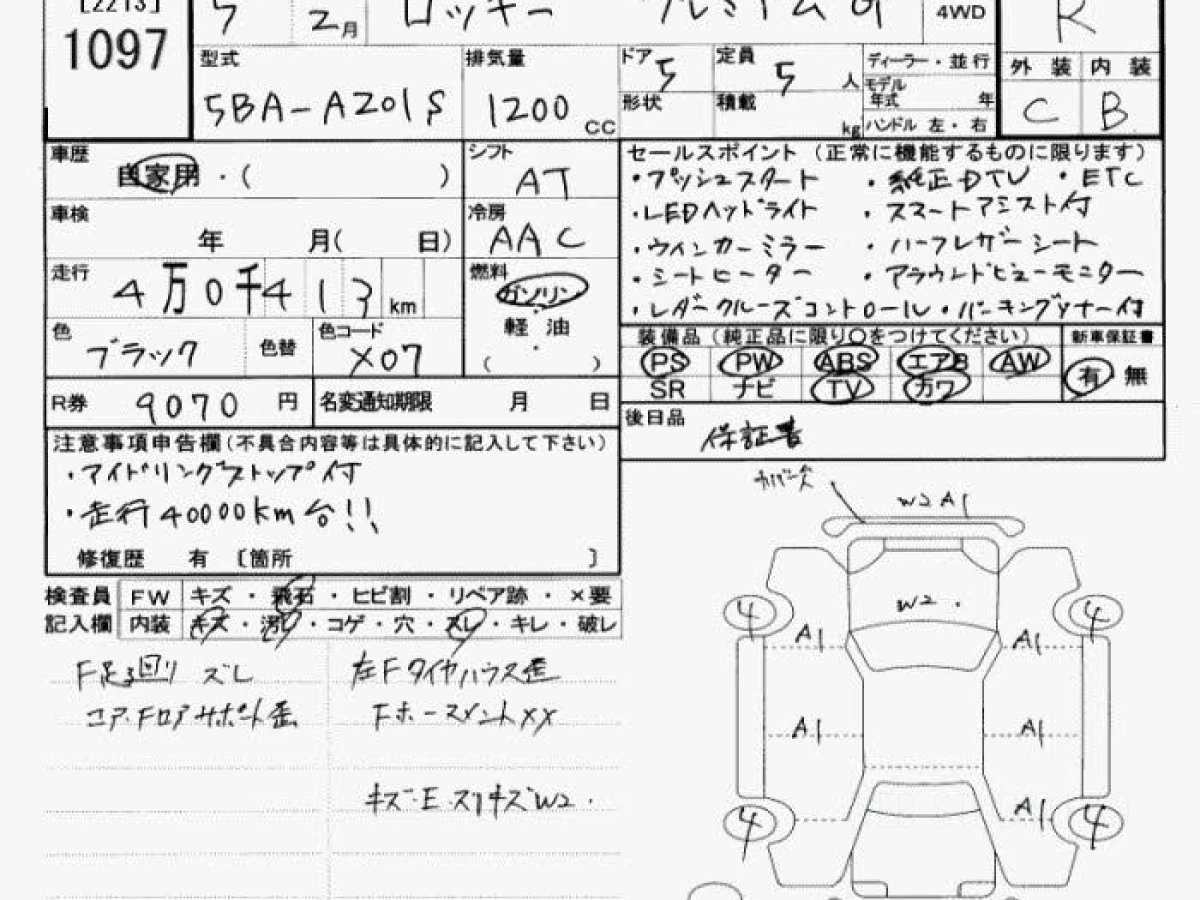 [2213]
1097
5 2月 ロッキー プレミアムG 4WD R
型式 5BA-A201S
排気量 1200 CC
ドア 5 定員 5 人
形状 積載 kg
ディーラー・並行
モデル年式 年
ハンドル 左・右
外装 内装
C B
車歴 自家用・( )
シフト AT
車検 年 月( 日)
冷房 AAC
走行 4万0千413 km
燃料 ガソリン
軽油
( )
色 ブラック 色替 色コード X07
R券 9070 円 名変通知期限 月 日
セールスポイント(正常に機能するものに限ります)
・プッシュスタート ・純正DTV ・ETC
・LEDヘッドライト ・スマートアシスト付
・ウィンカーミラー ・ハーフレザーシート
・シートヒーター ・アラウンドビューモニター
・レダークルーズコントロール ・パーキングソナー付
装備品(純正品に限り○をつけてください) 新車保証書
PS PW ABS エアB AW 有 無
SR ナビ TV カワ
後日品 保証書
注意事項申告欄(不具合内容等は具体的に記入して下さい)
・アイドリングストップ付
・走行40000km台!!
修復歴 有 〔箇所 〕
検査員 FW キズ・飛石・ヒビ割・リペア跡・×要
記入欄 内装 キズ・汚レ・コゲ・穴・スレ・キレ・破レ
F足回り ズレ 左Fタイヤハウス歪
コア・Fロアサポート歪 Fホースメント××
キズ・E・スリキズW2.
カバーズレ
W2 A1
W2.
4 4
A1 A1
A1 A1
A1
4 4